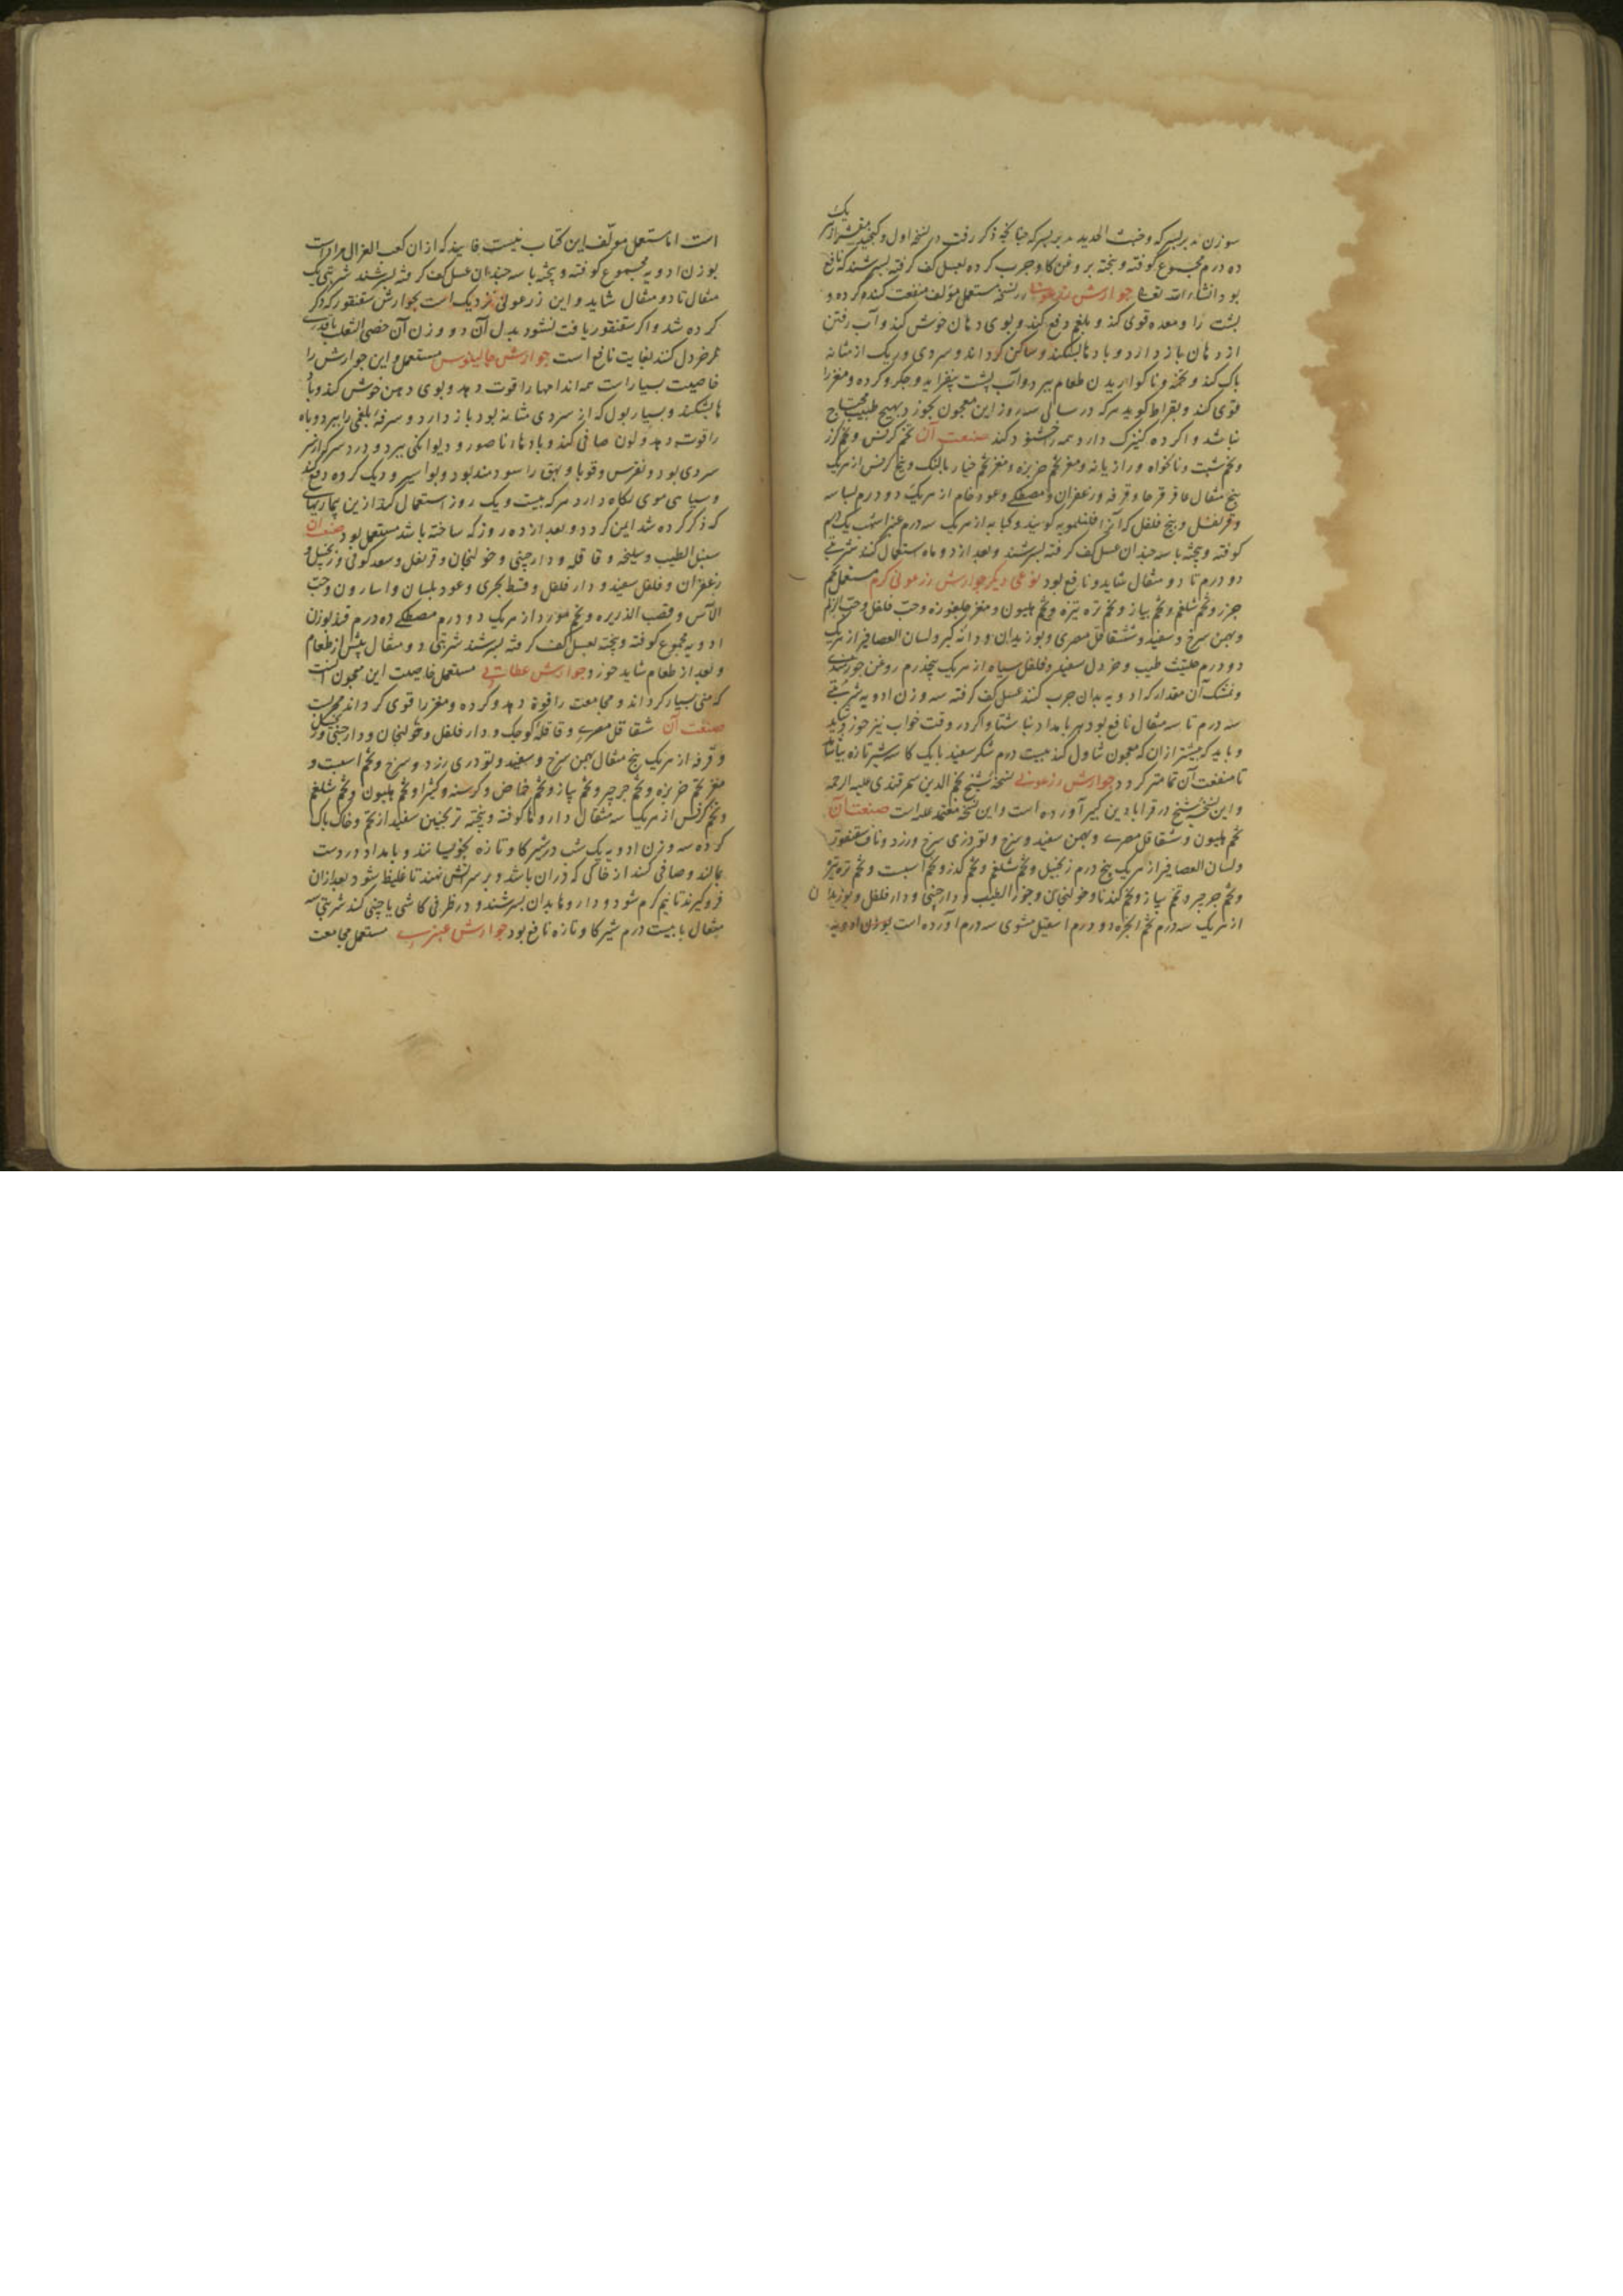 یک
سوزن مدبر بسرکه وخبث الحدید مدبر بسرکه چنانچه ذکر رفت در نسخه اول وکنجد مقشر از هر
ده درم مجموع کوفته وبیخته بروغن کاو چرب کرده بعسل کف کرفته بسرشند که نافع
بود انشاء الله تعالی جوارش زرعونی نسخه مستعمل مؤلف منفعت کند کرده و
پشت را ومعده قوی کند وبلغم دفع کند وبوی دهان خوش کند وآب رفتن
از دهان باز دارد وبادها بشکند وساکن کرداند وسردی وریک از مثانه
پاک کند وتخمه وناکواریدن طعام ببرد وآب پشت بیفزاید وجکر وکرده ومغز را
قوی کند وبقراط کوید هرکه در سالی سه روز این معجون بخورد بهیچ طبیب محتاج
نباشد واکر ده کنیزک دارد همه را خشنود کند صنعت آن تخم کرفس وتخم کزر
وتخم شبت ونانخواه ورازیانه ومغز تخم خربزه ومغز تخم خیار بالنک وبیخ کرفس از هریک
پنج مثقال عاقرقرحا وقرفه وزعفران ومصطکی وعود خام از هریک دو درم بسباسه
وقرنفل وبیخ فلفل که آنرا فلفلمویه کویند وکبابه از هریک سه درم عنبر اشهب یک درم
کوفته وبیخته با سه چندان عسل کف کرفته بسرشند وبعد از دو ماه استعمال کنند شربتی
دو درم تا دو مثقال شاید ونافع بود نوعی دیکر جوارش زرعونی کرم مستعمل تخم
جزر وتخم شلغم وتخم پیاز وتخم تره تیزه وتخم هلیون ومغز چلغوزه وحب فلفل وحب الزلم
وبهمن سرخ وسفید وشقاقل مصری وبوزیدان ودانه کبر ولسان العصافیر از هریک
دو درم حلتیث طیب وخردل سفید وفلفل سیاه از هریک پنجدرم روغن جوز هندی
وخشک آن مقدار که ادویه بدان چرب کنند عسل کف کرفته سه وزن ادویه شربتی
سه درم تا سه مثقال نافع بود هر بامداد ناشتا واکر در وقت خواب نیز خورد شاید
وباید که بیشتر از آن که معجون تناول کند بیست درم شکر سفید با یک کاسه شیر تازه بیاشامد
تا منفعت آن تمامتر کردد جوارش زرعونی نسخه شیخ نجم الدین سمرقندی علیه الرحمه
واین نسخه شیخ در قرابادین کبیر آورده است واین نسخه معتمد علیه است صنعت آن
تخم هلیون وشقاقل مصری وبهمن سفید وسرخ وتودری سرخ وزرد وناف سقنقور
ولسان العصافیر از هریک پنج درم زنجبیل وتخم شلغم وتخم کدز وتخم اسبست وتخم تره تیزه
وتخم جرجیر وتخم پیاز وتخم کندنا وخولنجان وجوز الطیب ودارچینی ودارفلفل وبوزیدان
از هریک سه درم تخم انجره دو درم اسقیل مشوی سه درم آورده است بوزن ادویه
است اما مستعمل مولف این کتاب نیست فانیذ که ازان کعب الغزال مراد است
بوزن ادویه مجموع کوفته وبیخته با سه چندان عسل کف کرفته بسرشند شربتی یک
مثقال تا دو مثقال شاید واین زرعونی نزدیک است بجوارش سقنقور که ذکر
کرده شد واکر سقنقور یافت نشود بدل آن دو وزن آن خصی الثعلب باقدری
تخم خردل کنند بغایت نافع است جوارش جالینوس مستعمل واین جوارش را
خاصیت بسیار است همه اندامها را قوت دهد وبوی دهن خوش کند وباد
ها بشکند وبسیار بول که از سردی مثانه بود باز دارد وسرفه بلغمی را ببرد وباه
را قوت دهد ولون صافی کند وبادها وناصور ودیوانکی ببرد ودرد سر که از سر
سردی بود ونقرس وقوبا وبهق را سودمند بود وبواسیر وریک کرده دفع کند
وسیاهی موی نکاه دارد هرکه بیست ویک روز استعمال کند از این بیماریهای
که ذکر کرده شد ایمن کردد وبعد از ده روز که ساخته باشد مستعمل بود صنعت آن
سنبل الطیب وسلیخه وقاقله ودارچینی وخولنجان وقرنفل وسعد کوفی وزنجبیل و
زعفران وفلفل سفید ودارفلفل وقسط بحری وعود بلسان واسارون وحب
الآس وقصب الذریره وتخم مورد از هریک دو درم مصطکی ده درم قند بوزن
ادویه مجموع کوفته وبیخته بعسل کف کرفته بسرشند شربتی دو مثقال پیش از طعام
وبعد از طعام شاید خورد جوارش عطائی مستعمل خاصیت این معجون آنست
که منی بسیار کرداند ومجامعت را قوة دهد وکرده ومغز را قوی کرداند مجربست
صنعت آن شقاقل مصری وقاقله کوچک ودارفلفل وخولنجان ودارچینی وزنجبیل
وقرفه از هریک پنج مثقال بهمن سرخ وسفید وتودری زرد وسرخ وتخم اسبست و
مغز تخم خربزه وتخم جرجیر وتخم پیاز وتخم خاض وکرسنه وکتیرا وتخم هلیون وتخم شلغم
وتخم کرفس از هریک سه مثقال داروها کوفته وبیخته ترنجبین سفید از تخم وخاک پاک
کرده سه وزن ادویه یک شب در شیر کاو تازه بخیسانند وبامداد در دست
بمالند وصافی کنند از خاکی که در آن باشد وبر سر آتش نهند تا غلیظ شود بعد ازان
فروکیرند تا نیم کرم شود وداروها بدان بسرشند ودر ظرفی کاشی یا چینی کند شربتی سه
مثقال با بیست درم شیر کاو تازه نافع بود جوارش عنبری مستعمل مجامعت